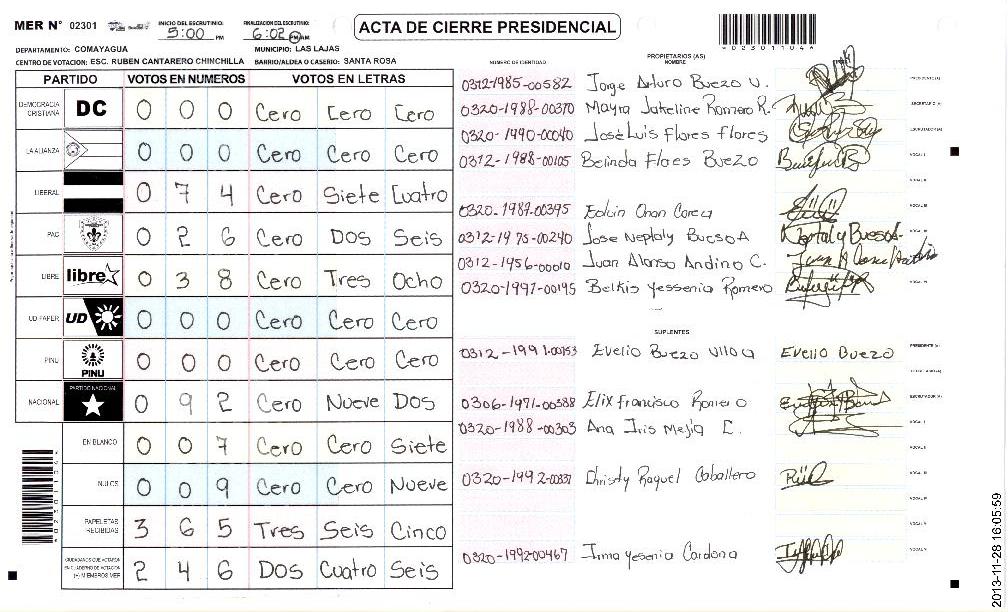 MER N° 02301 INICIO DEL ESCRUTINIO: 5:00 PM FINALIZACION DEL ESCRUTINIO: 6:02 PM AM
ACTA DE CIERRE PRESIDENCIAL
0230111044
DEPARTAMENTO: COMAYAGUA MUNICIPIO: LAS LAJAS
CENTRO DE VOTACION: ESC. RUBEN CANTARERO CHINCHILLA BARRIO/ALDEA O CASERIO: SANTA ROSA
PARTIDO VOTOS EN NUMEROS VOTOS EN LETRAS
DEMOCRACIA CRISTIANA DC 0 0 0 Cero Cero Cero
LA ALIANZA 0 0 0 Cero Cero Cero
LIBERAL 0 7 4 Cero Siete Cuatro
PAC 0 2 6 Cero Dos Seis
LIBRE libre 0 3 8 Cero Tres Ocho
UD FAPER UD 0 0 0 Cero Cero Cero
PINU PINU 0 0 0 Cero Cero Cero
NACIONAL PARTIDO NACIONAL 0 9 2 Cero Nueve Dos
EN BLANCO 0 0 7 Cero Cero Siete
NULOS 0 0 9 Cero Cero Nueve
PAPELETAS RECIBIDAS 3 6 5 Tres Seis Cinco
CIUDADANOS QUE VOTARON EN CUADERNO DE VOTACION (+) MIEMBROS MER 2 4 6 Dos Cuatro Seis
PROPIETARIOS (AS)
NUMERO DE IDENTIDAD NOMBRE
0312-1985-00582 Jorge Arturo Buezo V. PRESIDENTE(A)
0320-1988-00370 Mayra Jakeline Romero R. SECRETARIO(A)
0320-1990-00040 José Luis Flores Flores ESCRUTADOR(A)
0312-1988-00105 Belinda Flores Buezo VOCAL I
VOCAL II
0320-1989-00395 Edwin Onan Corea VOCAL III
0312-1975-00240 Jose Neptaly Bueso A VOCAL IV
0312-1956-00010 Juan Alonso Andino C. VOCAL V
0320-1997-00195 Belkis Yessenia Romero
SUPLENTES
0312-1991-00153 Evelio Buezo Villoca Evelio Buezo PRESIDENTE(A)
SECRETARIO(A)
0306-1971-00388 Elix Francisco Romero ESCRUTADOR(A)
0320-1988-00303 Ana Iris Mejia C. VOCAL I
VOCAL II
0320-1992-00337 Christy Raquel Caballero VOCAL III
VOCAL IV
0320-1992-00467 Irma Yesenia Cardona
2013-11-28 16:05:59